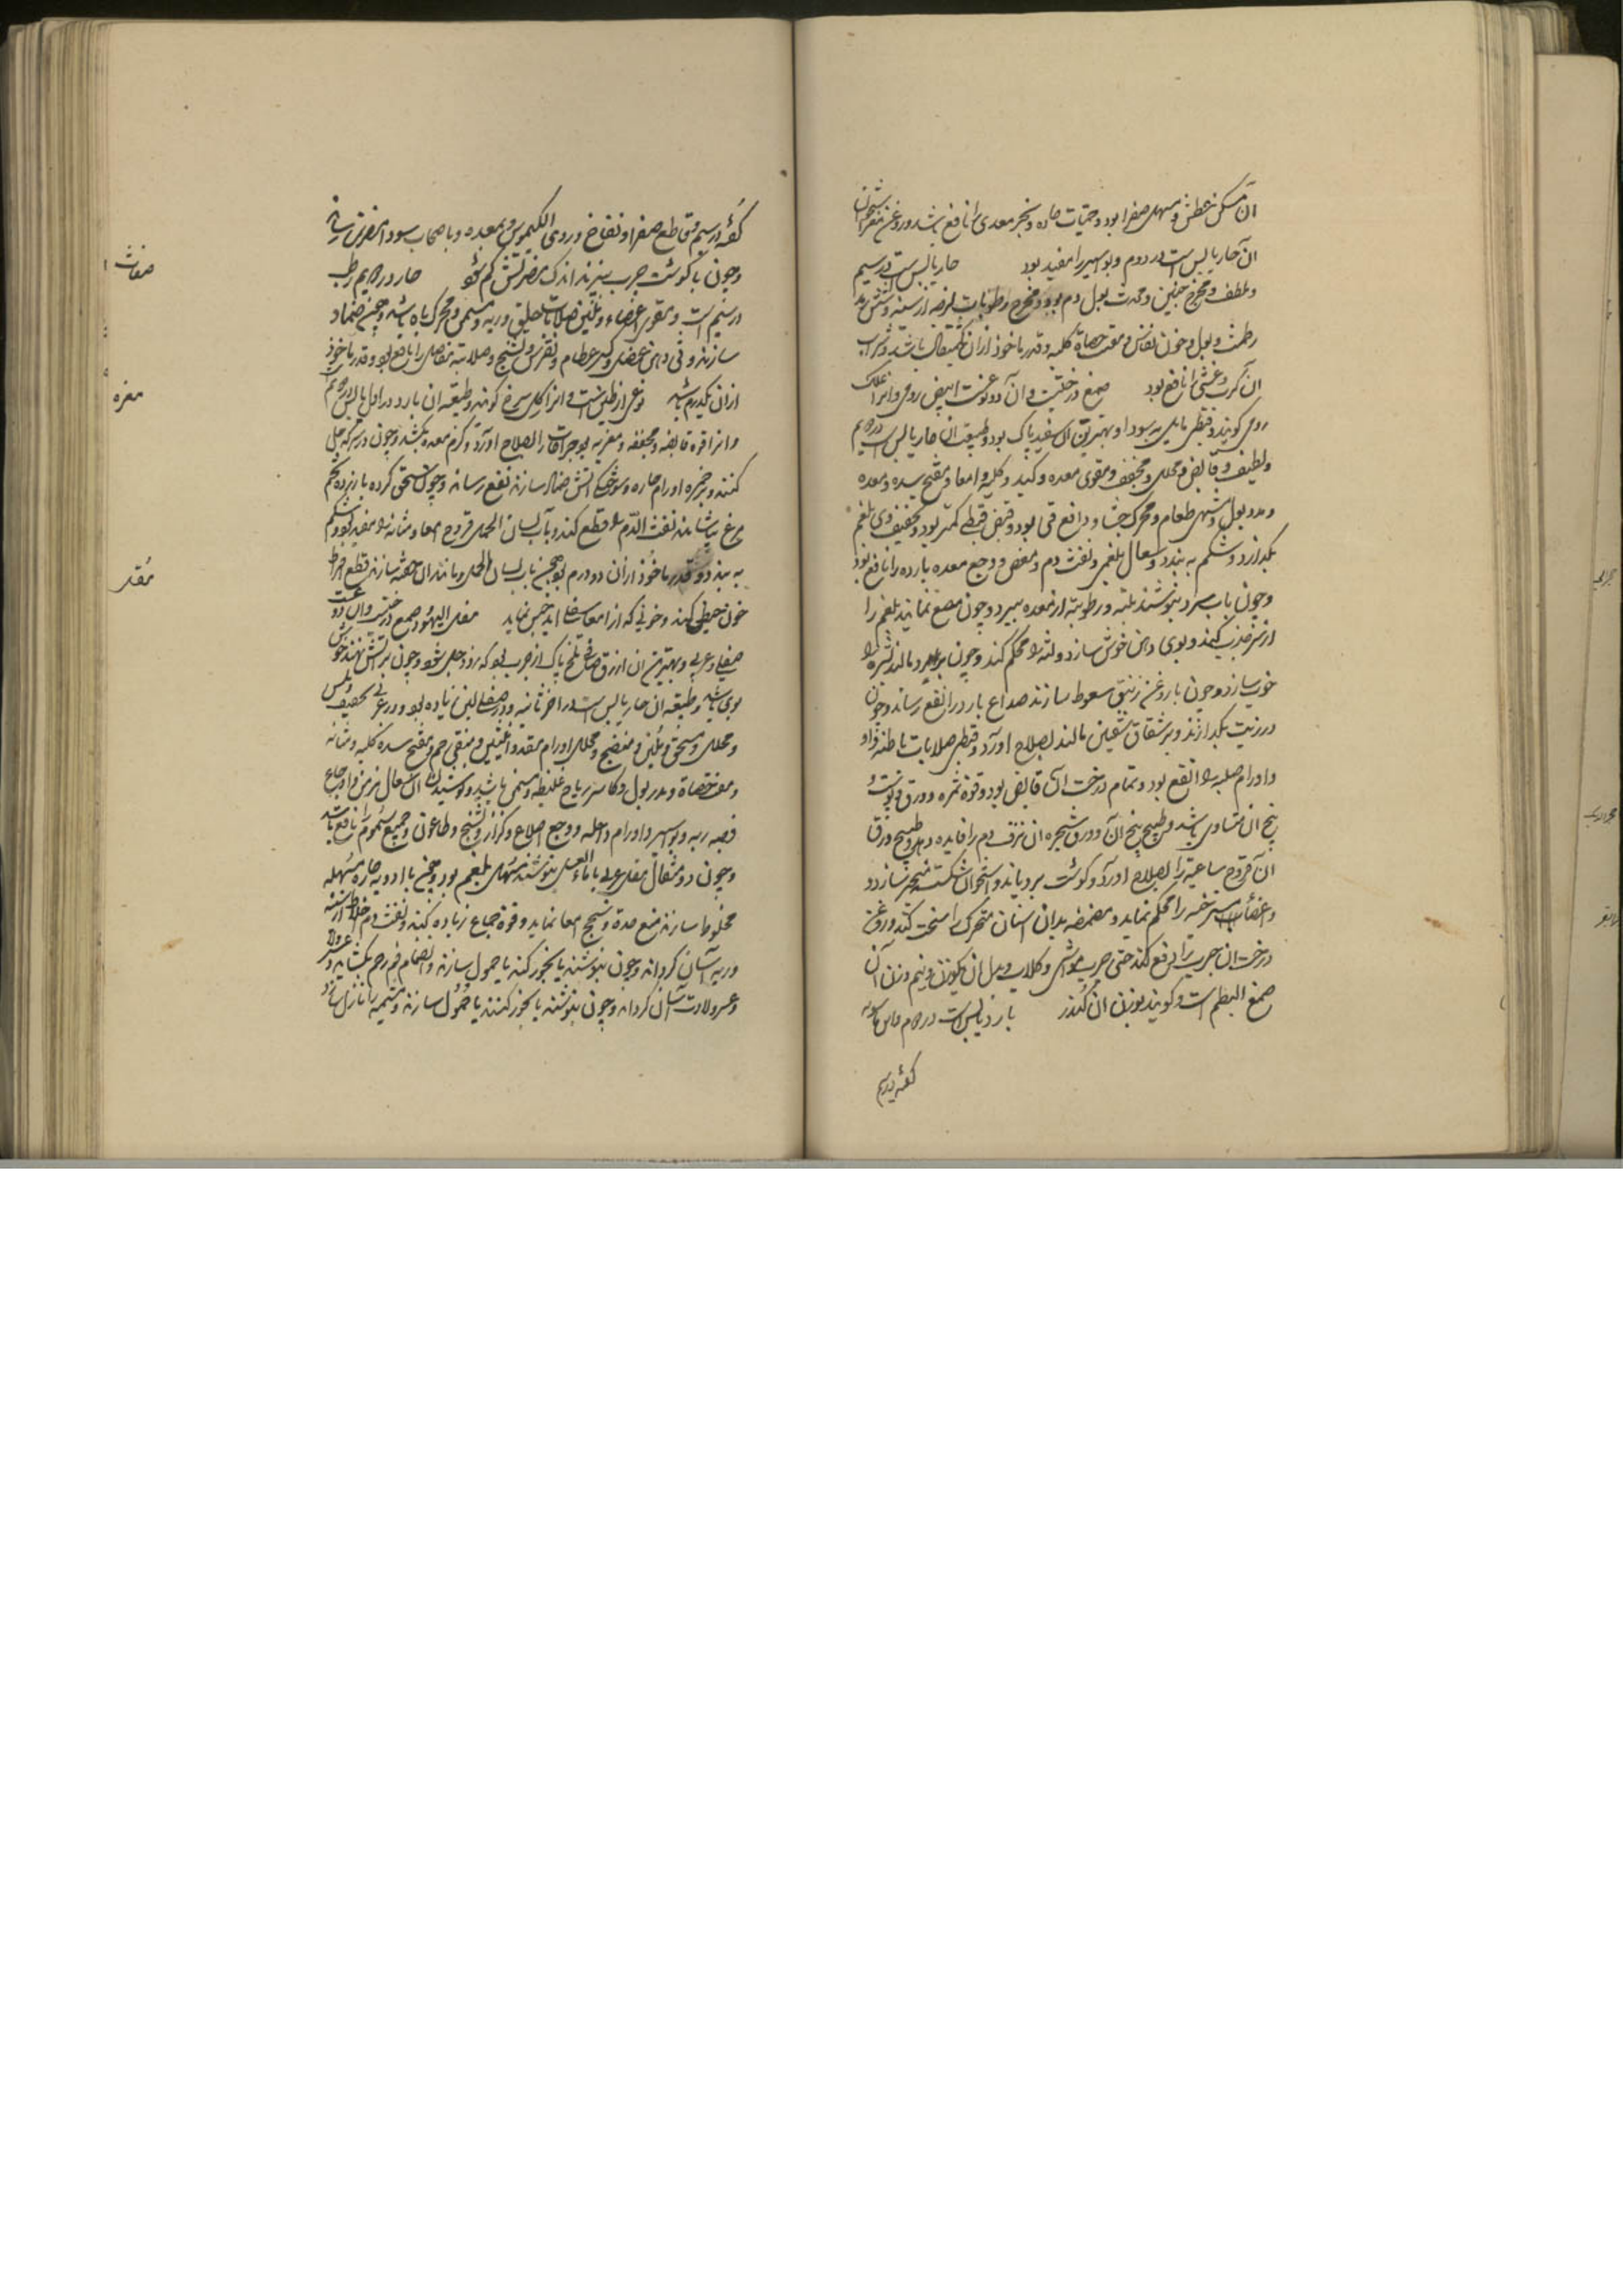 آن مسکن عطش و مسهل صفرا بود و حمیات حاده و بخر معدی را نافع باشد و روغن
آن حار یابس است در دوم و بواسیر را مفید بود حار یابس است در سیم
و ملطف و مخرج جنین و محدث بول دم بود و مخرج رطوبات لزجه از سینه و شش
و طمث و بول و خون نفاس و مفتت حصاة کلیه و قدر ماخوذ از آن یکمثقال باشد و شراب
آن کرب و غشی را نافع بود صمغ درختیست و آن دو نوعست ابیض رومی و آنرا علک
رومی گویند و قبطی مایل به سودا و بهترین آن سفید پاک بود و طبیعت آن حار یابس است
و لطیف و قابض و محلل و مجفف و مقوی معده و کبد و کلیه و امعا و مفتح سده و معده
و مدر بول و مشهی طعام و محرک جشا و دافع قی بود و قبض قبطی کمتر بود و تجفیف وی بلغم
بگدازد و شکم به بندد و سعال بلغمی و نفث دم و مغص و وجع معده بارده را نافع بود
و چون بآب سرد بنوشند بلته و رطوبته از معده ببرد و چون مضغ نمایند بلغم را
از سر جذب کند و بوی دهن خوش سازد و لثه را محکم کند و چون بر مالند بشره را
خوب سازد و چون با روغن زنبق سعوط سازند صداع بارد را نفع رساند و چون
در زیت بگدازند و بر شقاق شفتین مالند بصلاح آورد و قبطی صلابات باطنه
و اورام صلبه را انفع بود و تمام درخت آن قابض بود و قوة ثمره و ورق و پوست
بیخ آن متساوی باشد و طبیخ بیخ آن و ورق شجره آن نزف دم را فایده دهد و طبیخ ورق
آن قروح ساعیه را بصلاح آورد و گوشت برویاند و استخوان شکسته منجبر سازد و
و اعضاء مسترخیه را محکم نماید و مضمضه بدان اسنان متحرک را سخت کند و روغن
درخت آن جرب را رفع کند حتی جرب مواشی و کلاب و بدل آن یکوزن و نیم وزن آن
صمغ البطم است و گویند بوزن آن کندر بارد یابس است در دوم
گفته در سیم
گفته در سیم و قاطع صفرا و نفاخ و ردی الکیموس و بمعده و باصحاب سودا مضرت رساند
و چون با گوشت چرب بپزند اندک مضرتش کم شود حار در دویم رطب
در سیم است و مقوی اعضاء و ملین صلابات حلق و ریه و مسمن و محرک باه باشد و چون ضماد
سازند وثی و وهن عضل و کسر عظام و نقرس و تشنج و صلابته مفاصل را نافع بود و قدر ماخوذ
از آن یکدرم باشد نوعی از طین است و آنرا گل سرخ گویند و طبیعه آن بارد در اول یابس در دویم
و آنرا قوة قابضه و مجففه و مغریه بود جراحات را بصلاح آورد و کرم معده بکشد و چون در سرکه حل
کنند و بر حمره و اورام حاره و سوختگی آتش ضماد سازند نفع رساند و چون سحق کرده با زرده تخم
مرغ بیاشامند نفث الدم را قطع کند و بآب لسان الحمل قروح امعا و مثانه را مفید بود و شکم
به بندد و قدر ماخوذ از آن دو درم بود و چون بآب لسان الحمل و مانند آن حقنه سازند قطع افراط
خون حیض کند و خونی که از امعاء سفلی آید حبس نماید مقل الیهود صمغ درختیست و آن دو نوعست
صقلی و عربی و بهترین آن ازرق صافی تلخ پاک از چوب بود که زود حل شود و چون بر آتش نهند خوش
بوی باشد و طبیعه آن حار یابس است در آخر ثانیه و در صقلی لین زیاده بود و در عربی تجفیف
و محلل و مسخن و ملین و منضج و محلل اورام مقعد و انثیین و منقی رحم و مفتح سده کلیه و مثانه
و مفتت حصاة و مدر بول و کاسر ریاح غلیظه و مسمن باشد و نوشیدن آن سعال مزمن و اوجاع
قصبه ریه و بواسیر و اورام داخله و وجع اضلاع و کزاز و تشنج و طاعون و جمیع سموم را نافع باشد
و چون دو مثقال مقل عربی با ماء العسل بنوشند مسهل بلغم بود و چون با ادویه حاره مسهله
مخلوط سازند منع حدة و سحج امعا نماید و قوة جماع زیاده کند و نفث دم
و ریه آسان گرداند و چون بنوشند یا بخور کنند یا حمول سازند و انضمام فم رحم بگشاید و
و عسر ولادت آسان گرداند و چون بنوشند یا بخور کنند یا حمول سازند و مشیمه را نازل سازد
مغاث
مغره
مقل